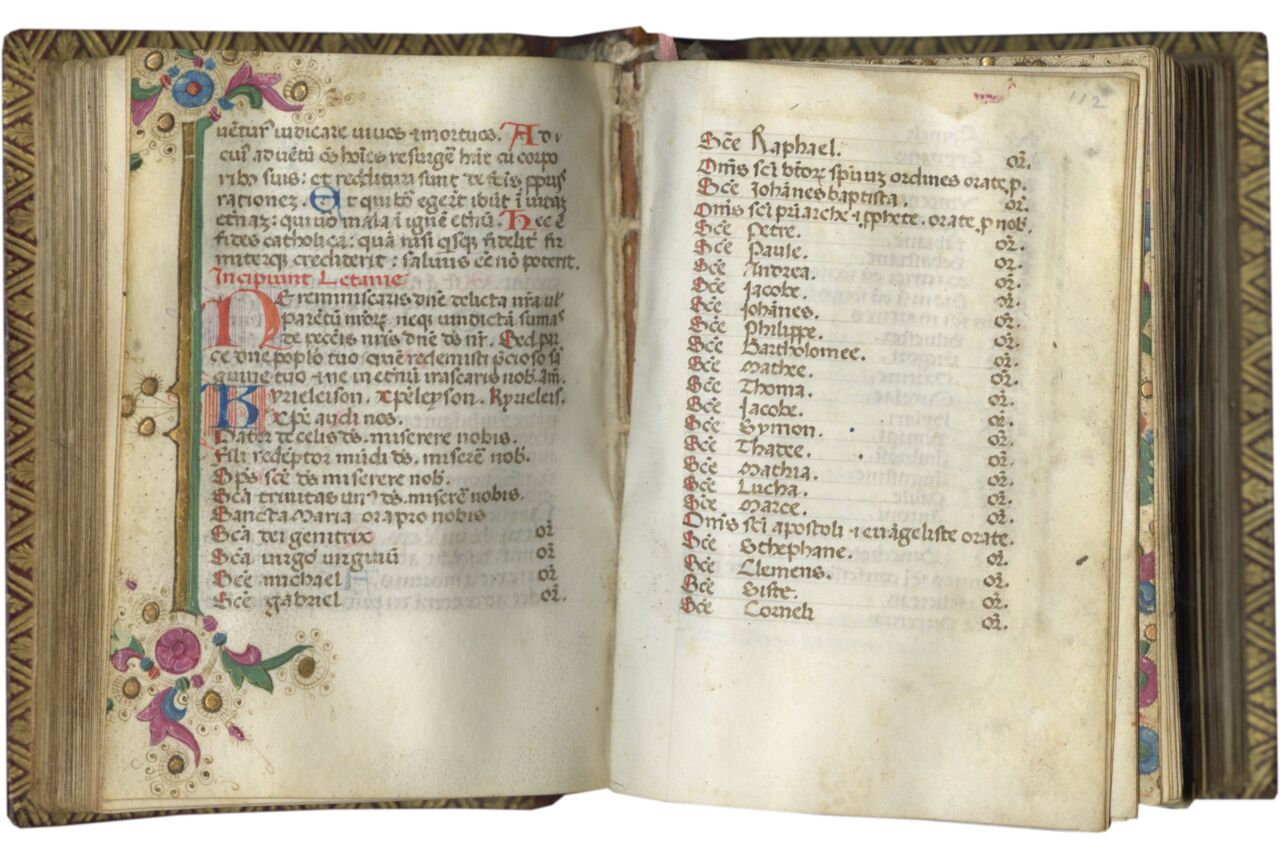 uẽtur̃ iudicare uiuos ⁊ mortuos. Ad i
cui9 aduẽtũ oẽs hoĩes resurgẽ hñt cũ corpo
ribȝ suis: et reddituri sunt de fc̃is ppriis
rationeȝ. Et qui bõ egerĩt ibũt ĩ uitaȝ
etñaȝ: qui uõ mala ĩ ignẽ etñũ. Hec ẽ
fides catholica: quã nisi qsq; fidelit̃ fir
miterq; crediderit: saluus eẽ nõ poterit.
Incipiunt Letanie
NE reminiscaris dñe delicta nr̃a uľ
parẽtũ nr̃oꝝ neq; uindictã sumas
de pecc̃is nr̃is dñe ds̃ nr̃. Sed par
ce dñe poplo tuo quẽ redemisti p̃cioso sã
guine tuo ⁊ ne in etñũ irascaris nob̃. añ.
Kyrieleison. xp̃eleyson. Kyrieleis̃.
Xp̃e audi nos.
Pater de celis ds̃. miserere nobis.
Fili redẽptor mũdi ds̃. miserẽ nob̃.
Sp̃s sc̃e ds̃ miserere nob̃.
Sc̃a trinitas un9 ds̃. miserẽ nobis.
Sancta Maria ora pro nobis
Sc̃a dei genitrix or̃
Sc̃a uirgo uirginũ or̃
Sc̃e michael or̃
Sc̃e gabriel or̃.
112
Sc̃e Raphael. or̃.
Om̃s sc̃i btõꝝ sp̃uuȝ ordines orate p̱.
Sc̃e Johãnes baptista. or̃.
Om̃s sc̃i pr̃iarche ⁊ p̱phete. orate p̱ nob̃.
Sc̃e Petre. or̃.
Sc̃e Paule. or̃.
Sc̃e Andrea. or̃.
Sc̃e Jacobe. or̃.
Sc̃e Johãnes. or̃.
Sc̃e Philippe. or̃.
Sc̃e Bartholomee. or̃.
Sc̃e Mathee. or̃.
Sc̃e Thoma. or̃.
Sc̃e Jacobe. or̃.
Sc̃e Symon. or̃.
Sc̃e Thadee. or̃.
Sc̃e Mathia. or̃.
Sc̃e Lucha. or̃.
Sc̃e Marce. or̃.
Om̃s sc̃i apostoli ⁊ euãgeliste orate.
Sc̃e Sthephane. or̃.
Sc̃e Clemens. or̃.
Sc̃e Siste. or̃.
Sc̃e Corneli or̃.